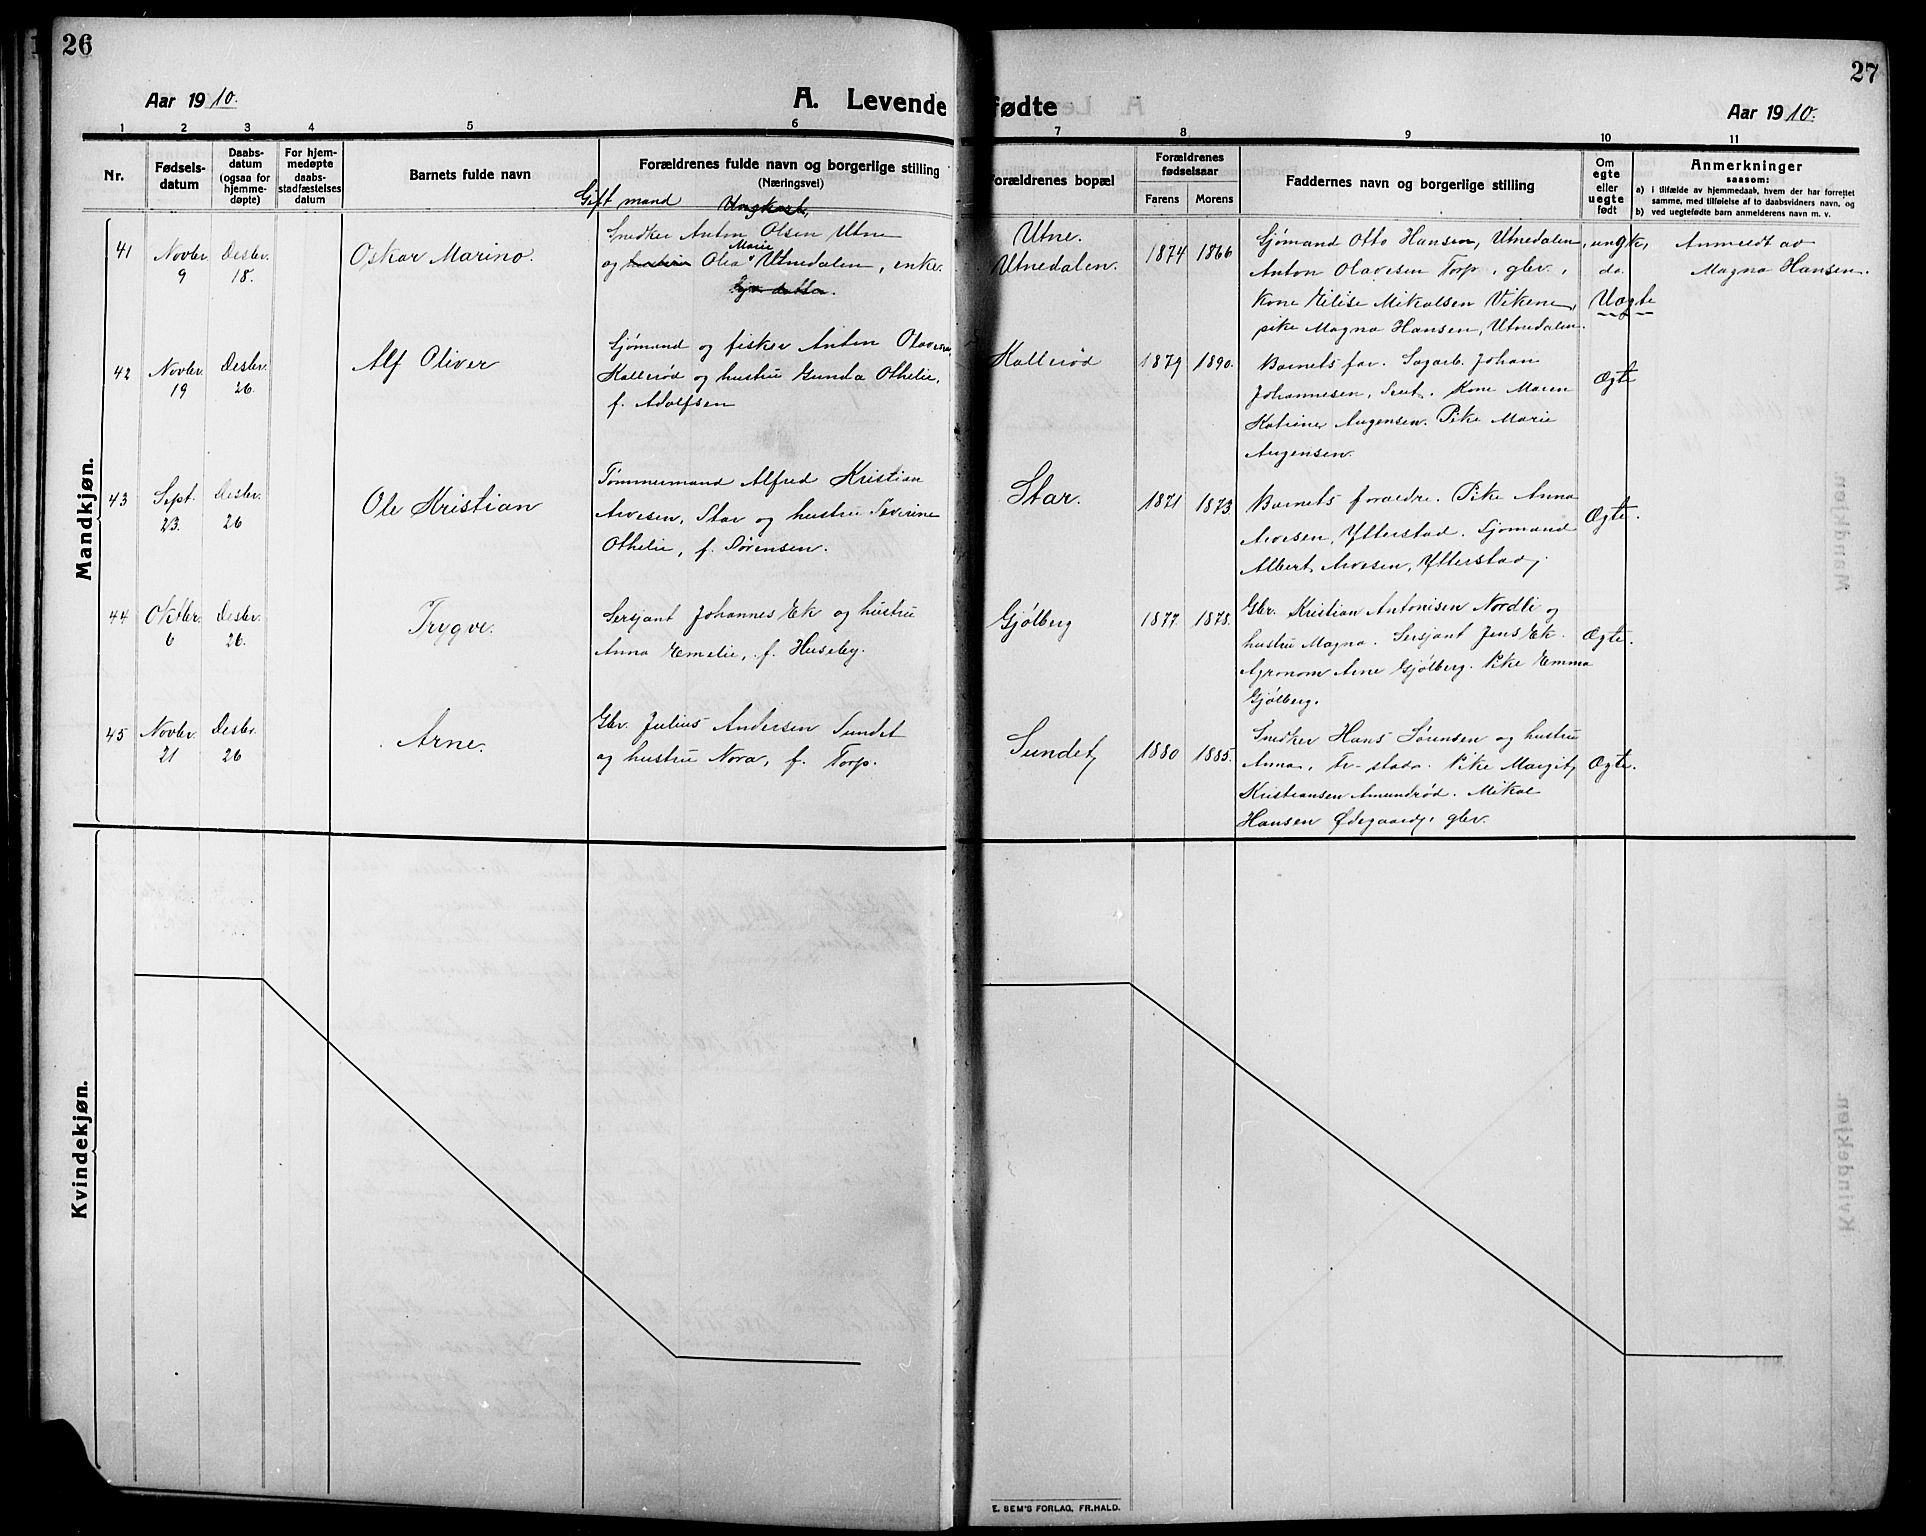 26
Aar 1910.
A. Levende
1 2 3 4 5 6
Nr.
Fødsels-
datum
Daabs-
datum
(ogsaa for
hjemme-
døpte)
For hjem-
medøpte
daabs-
stadfæstelses
datum
Barnets fulde navn
Forældrenes fulde navn og borgerlige stilling
(Næringsvei)
Mandkjøn.
Gift mand Ungkarl,
41 Novbr. 9 Desbr. 18. Oskar Marino.
Snedker Anton Olsen Utne
Marie
og hustru Olea Utnedalen, enke.
42 Novbr. 19 Desbr. 26. Alf Oliver
Sjømand og fisker Anton Olavesen,
Kallerød og hustru Gunda Othelie,
f. Adolfsen
43 Sept. 23. Desbr. 26 Ole Kristian
Tømmermand Alfred Kristian
Arvesen, Star og hustru Severine
Othelie, f. Sørensen.
44 Oktbr. 6 Desbr. 26. Trygve.
Sersjant Johannes Ek og hustru
Anna Emelie, f. Huseby.
45 Novbr. 21 Desbr. 26 Arne.
Gbr. Julius Andersen Sundet
og hustru Nora, f. Torp.
Kvindekjøn.
27
fødte
Aar 1910.
7 8 9 10 11
Forældrenes bopæl
Forældrenes
fødselsaar
Farens Morens
Faddernes navn og borgerlige stilling
Om
egte
eller
uegte
født
Anmerkninger
saasom:
a) i tilfælde av hjemmedaab, hvem der har forrettet
samme, med tilføielse af to daabsvidners navn, og
b) ved uegtefødte barn anmelderens navn m. v.
Utne.
Utnedalen. 1874 1866
Sjømand Otto Hansen, Utnedalen, ungk,
Anton Olavesen Torp, gbr., do.
Kone Elise Mikalsen Vikene,
pike Magna Hansen, Utnedalen.
Uægte
Anmeldt av
Magna Hansen.
Kallerød 1879 1890.
Barnets far. Sagarb. Johan
Johannesen, Sent. Kone Maren
Katrine Augensen. Pike Marie
Augensen.
Ægte
Star. 1871 1873.
Barnets forædre. Pike Anna
Arvesen, Ytterstad. Sjømand
Albert Arvesen, Ytterstad,
Ægte.
Gjølberg 1877. 1878.
Gbr. Kristian Antonisen Nordli og
hustru Magna. Sersjant Jens Ek.
Agronom Arne Gjølberg. Pike Emma
Gjølberg.
Ægte.
Sundet, 1880 1885.
Snedker Hans Sørensen og hustru
Anna, Fr-stad. Pike Margit
Kristiansen Amundrød. Mikal
Hansen Ødegaard, gbr.
Ægte.
E. SEM'S FORLAG, FR.HALD.